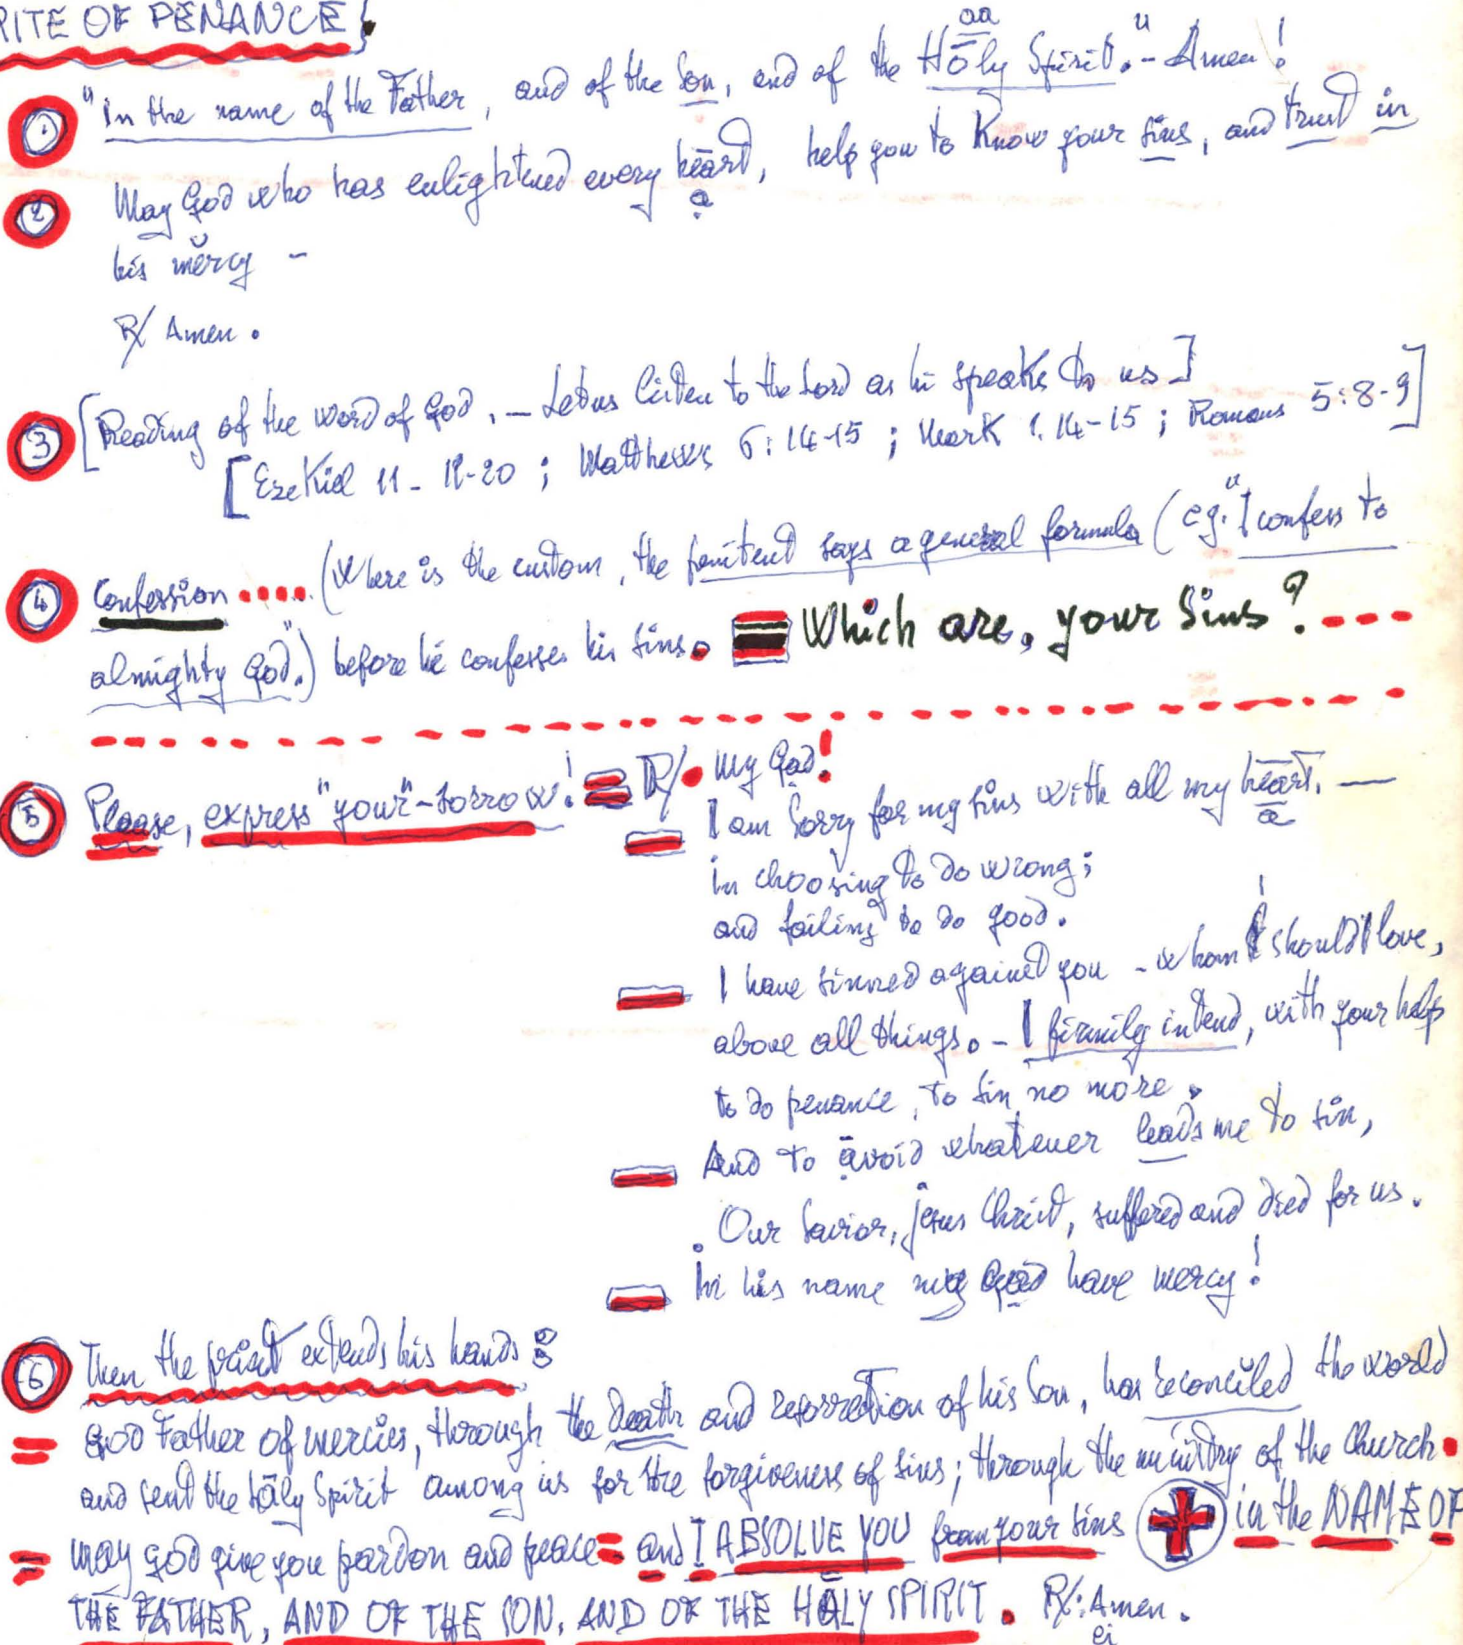 RITE OF PENANCE
aa
1 "in the name of the Father, and of the Son, and of the Hōly Spirit."- Amen!
2 May God who has enlightened every heārt, help you to Know your sins, and trust in
a
his mĕrcy -
R/ Amen.
3 [Reading of the word of God. - Let us listen to the Lord as he speaks to us]
[Ezekiel 11-19-20; Matthews 6:14-15; Mark 1.14-15; Romans 5:8-9]
4 Confession ..... (where is the custom, the penitent says a general formula (eg. "I confess to
almighty God".) before he confesses his sins. Which are, your Sins? ----
5 Please, express "your"-sorrow! = R/. My God!
I am Sorry for my sins with all my heārt. —
a
in choosing to do wrong;
and failing to do good.
I have sinned against you - whom I should love,
above all things. - I firmily intend, with your help
to do penance, to sin no more.
And to āvoid whatever leads me to sin,
. Our Savior, jesus Christ, suffered and died for us.
In his name my God have mercy!
6 Then the priest extends his hands:
= God Father of mercies, through the death and resorrection of his Son, has reconcĭled the world
and sent the hāly Spirit among us for the forgiveness of sins; through the ministry of the Church.
= may god give you pardon and peace = and I ABSOLVE YOU from your sins in the NAME OF
THE FATHER, AND OF THE SON, AND OF THE HĀLY SPIRIT. R/: Amen.
ei